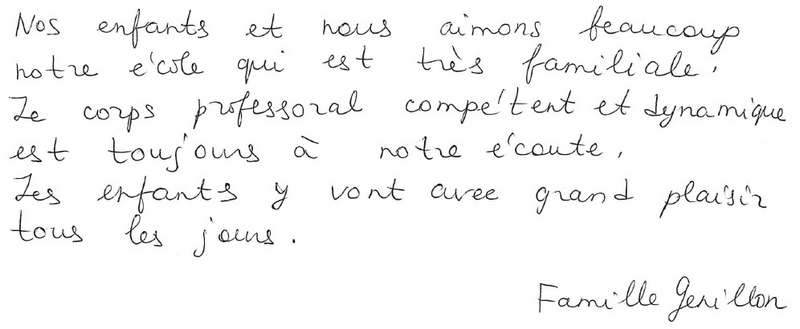 Nos enfants et nous aimons beaucoup
notre école qui est très familiale.
Le corps professoral compétent et dynamique
est toujours à notre écoute.
Les enfants y vont avec grand plaisir
tous les jours.
Famille